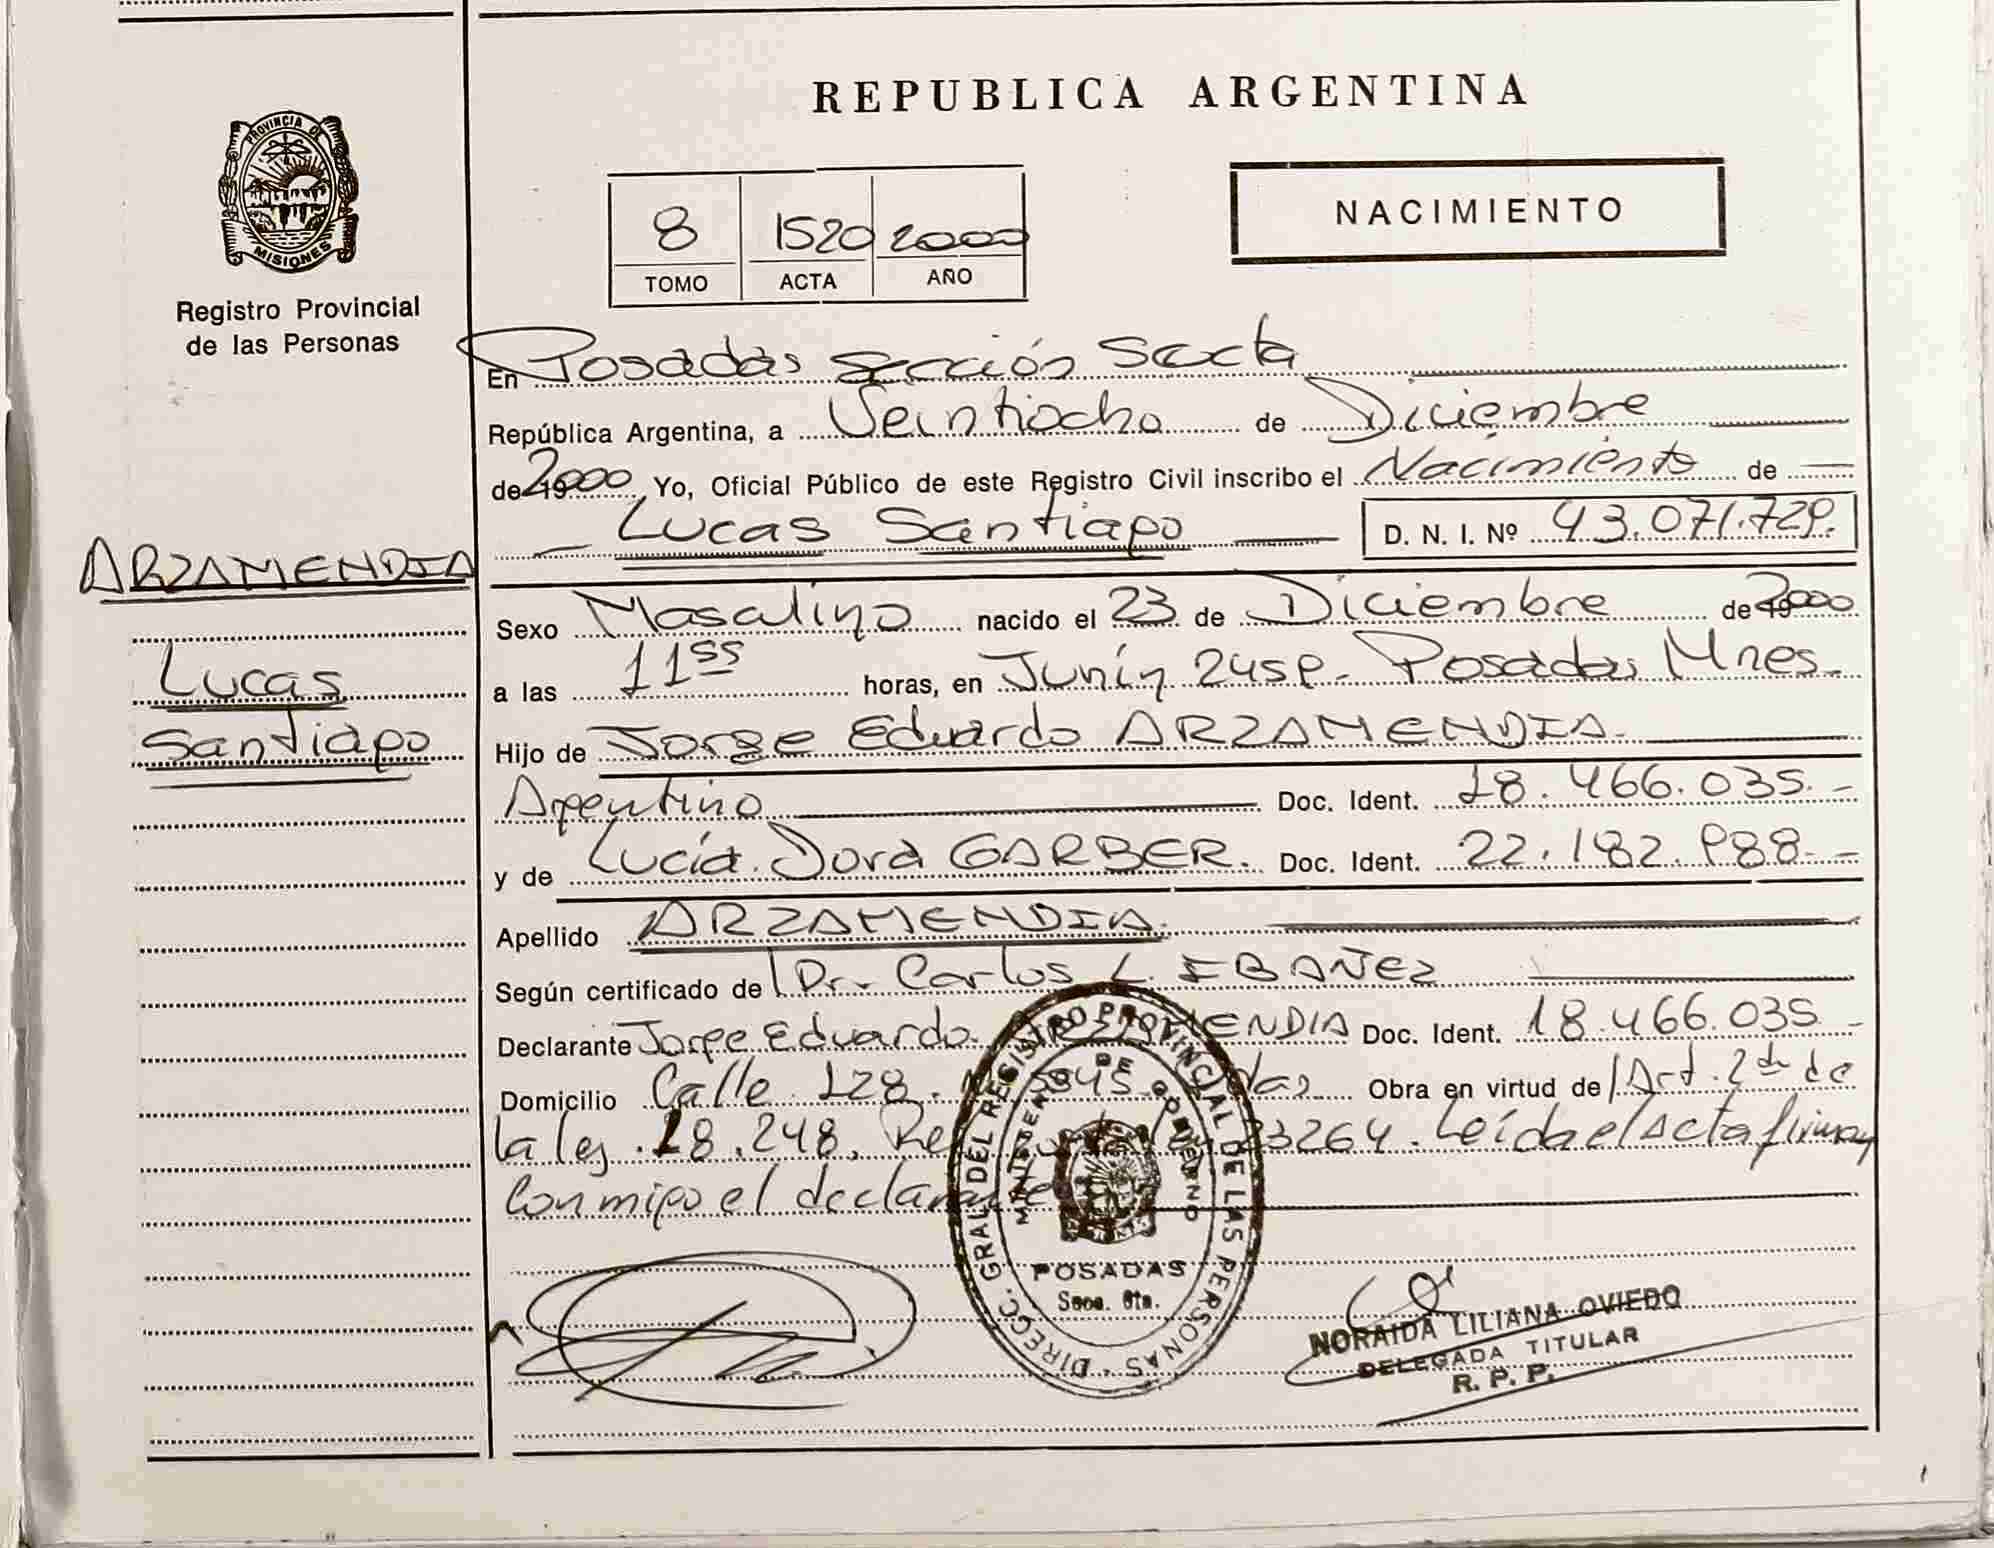 REPUBLICA ARGENTINA
PROVINCIA DE
MISIONES
Registro Provincial
de las Personas
8 1520 2000
TOMO ACTA AÑO
NACIMIENTO
En Posadas sección Sexta
República Argentina, a Veintiocho de Diciembre
de 2000 Yo, Oficial Público de este Registro Civil inscribo el Nacimiento de
Lucas Santiago D. N. I. Nº 43.071.729.
ARZAMENDIA
Lucas
Santiago
Sexo Masculino nacido el 23 de Diciembre de 2000
a las 11 55 horas, en Junín 2459. Posadas Mnes.
Hijo de Jorge Eduardo ARZAMENDIA.
Argentino Doc. Ident. 18.466.035.
y de Lucía Dora GARBER. Doc. Ident. 22.182.988.
Apellido ARZAMENDIA.
Según certificado de Dr. Carlos L. IBAÑEZ
Declarante Jorge Eduardo ENDIA Doc. Ident. 18.466.035
Domicilio Calle 128. Obra en virtud de Art. 2do de
la ley 18.248. 23264. Leída el Acta firman
Conmigo el declarante
DIRECC. GRAL. DEL REGISTRO PROVINCIAL DE LAS PERSONAS
MINISTERIO DE GOBIERNO
POSADAS
Secc. 6ta.
NORAIDA LILIANA OVIEDO
DELEGADA TITULAR
R. P. P.